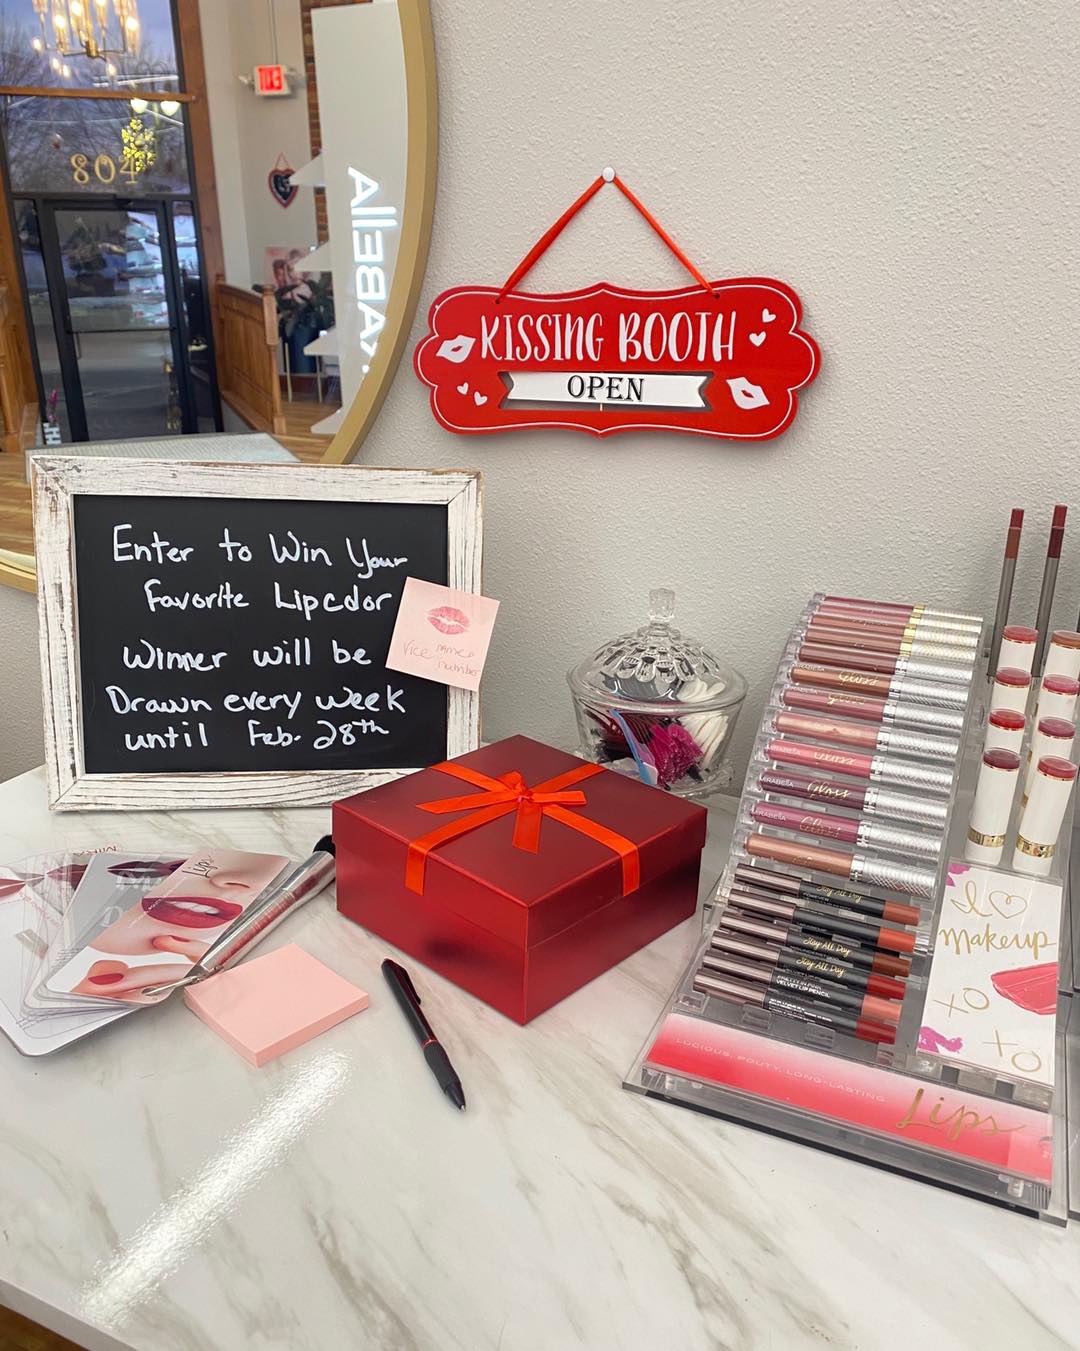 804
KISSING BOOTH
OPEN
Enter to Win Your
Favorite Lipcdor
Winner will be
Drawn every week
until Feb. 28th
name &
number
Lips
MIRABELLA
Gloss
MIRABELLA
Gloss
MIRABELLA
Gloss
Stay All Day
Stay All Day
Stay All Day
VELVET LIP PENCIL
I ♡
Makeup
XO
XO
LUCIOUS, POUTY, LONG-LASTING
Lips